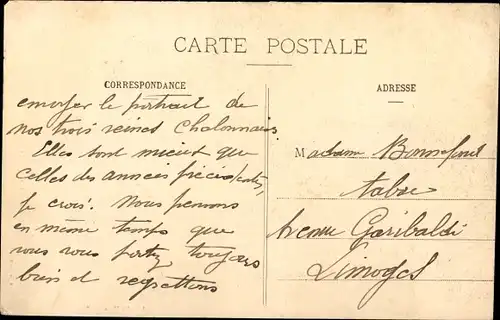 CARTE POSTALE
CORRESPONDANCE
envoyer le portrait de
nos trois reines Chalonnaises.
Elles sont mieux que
celles des années précédentes,
je crois. Nous pensons
en même temps que
vous vous portez toujours
bien et regrettons
ADRESSE
Madame
tabac
Avenue Garibaldi
Limoges